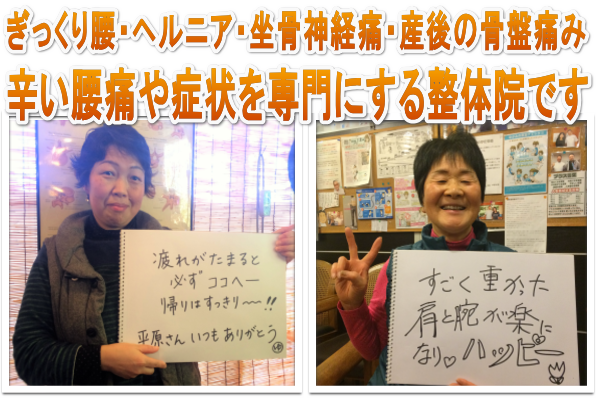 ぎっくり腰・ヘルニア・坐骨神経痛・産後の骨盤痛み
辛い腰痛や症状を専門にする整体院です
疲れがたまると
必ず ココへー
帰りはすっきり〜〜!!
平原さん いつも ありがとう
すごく重かった
肩と腕が楽に
なり♡ハッピー